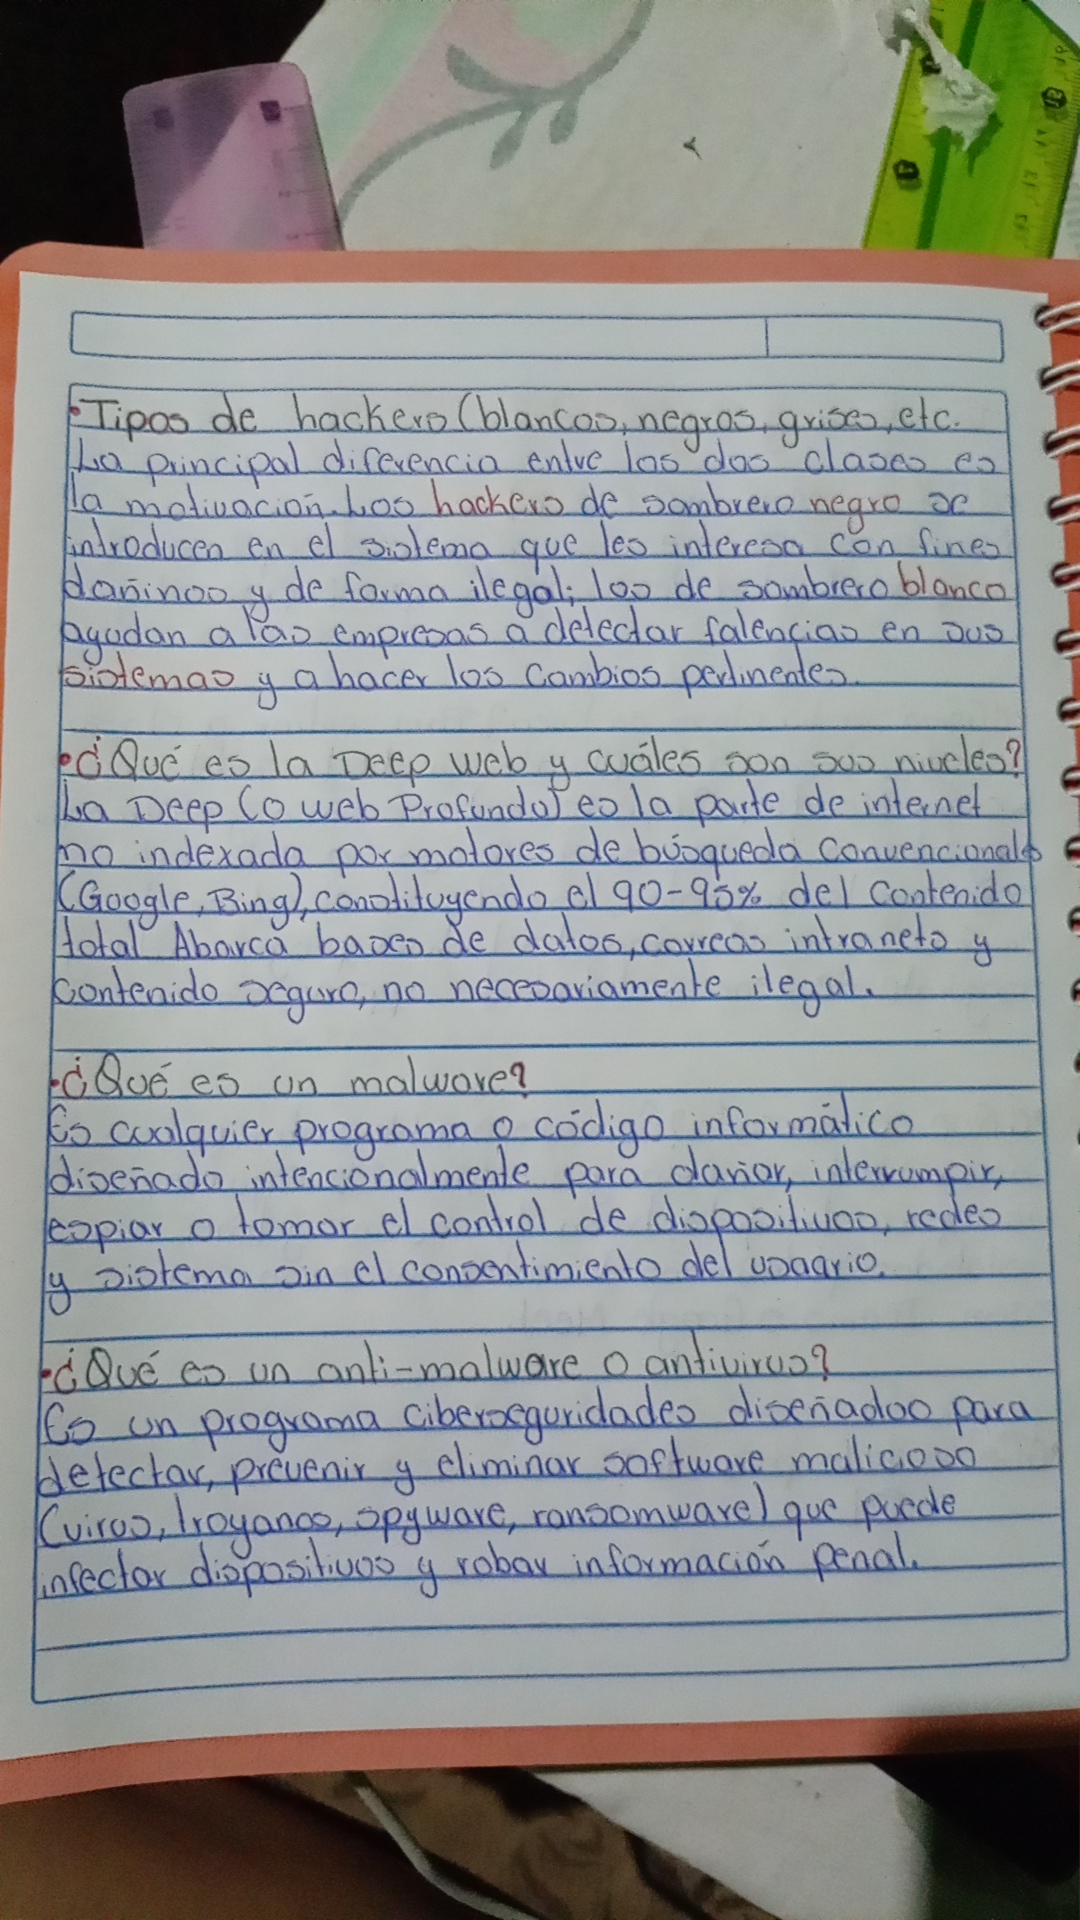 •Tipos de hackers (blancos, negros, grises, etc.
La principal diferencia entre las dos clases es
la motivación. Los hackers de sombrero negro se
introducen en el sistema que les interesa con fines
dañinos y de forma ilegal; los de sombrero blanco
ayudan a las empresas a detectar falencias en sus
sistemas y a hacer los cambios pertinentes.
•¿Qué es la Deep web y cuáles son sus niveles?
La Deep (o web Profunda) es la parte de internet
no indexada por motores de búsqueda convencionales
(Google, Bing), constituyendo el 90-95% del contenido
total Abarca bases de datos, correos intranets y
contenido seguro, no necesariamente ilegal.
•¿Qué es un malware?
Es cualquier programa o código informático
diseñado intencionalmente para dañar, interrumpir,
espiar o tomar el control de dispositivos, redes
y sistema sin el consentimiento del usuario.
•¿Qué es un anti-malware o antivirus?
Es un programa ciberseguridades diseñados para
detectar, prevenir y eliminar software malicioso
(virus, troyanos, spyware, ransomware) que puede
infectar dispositivos y robar información penal.